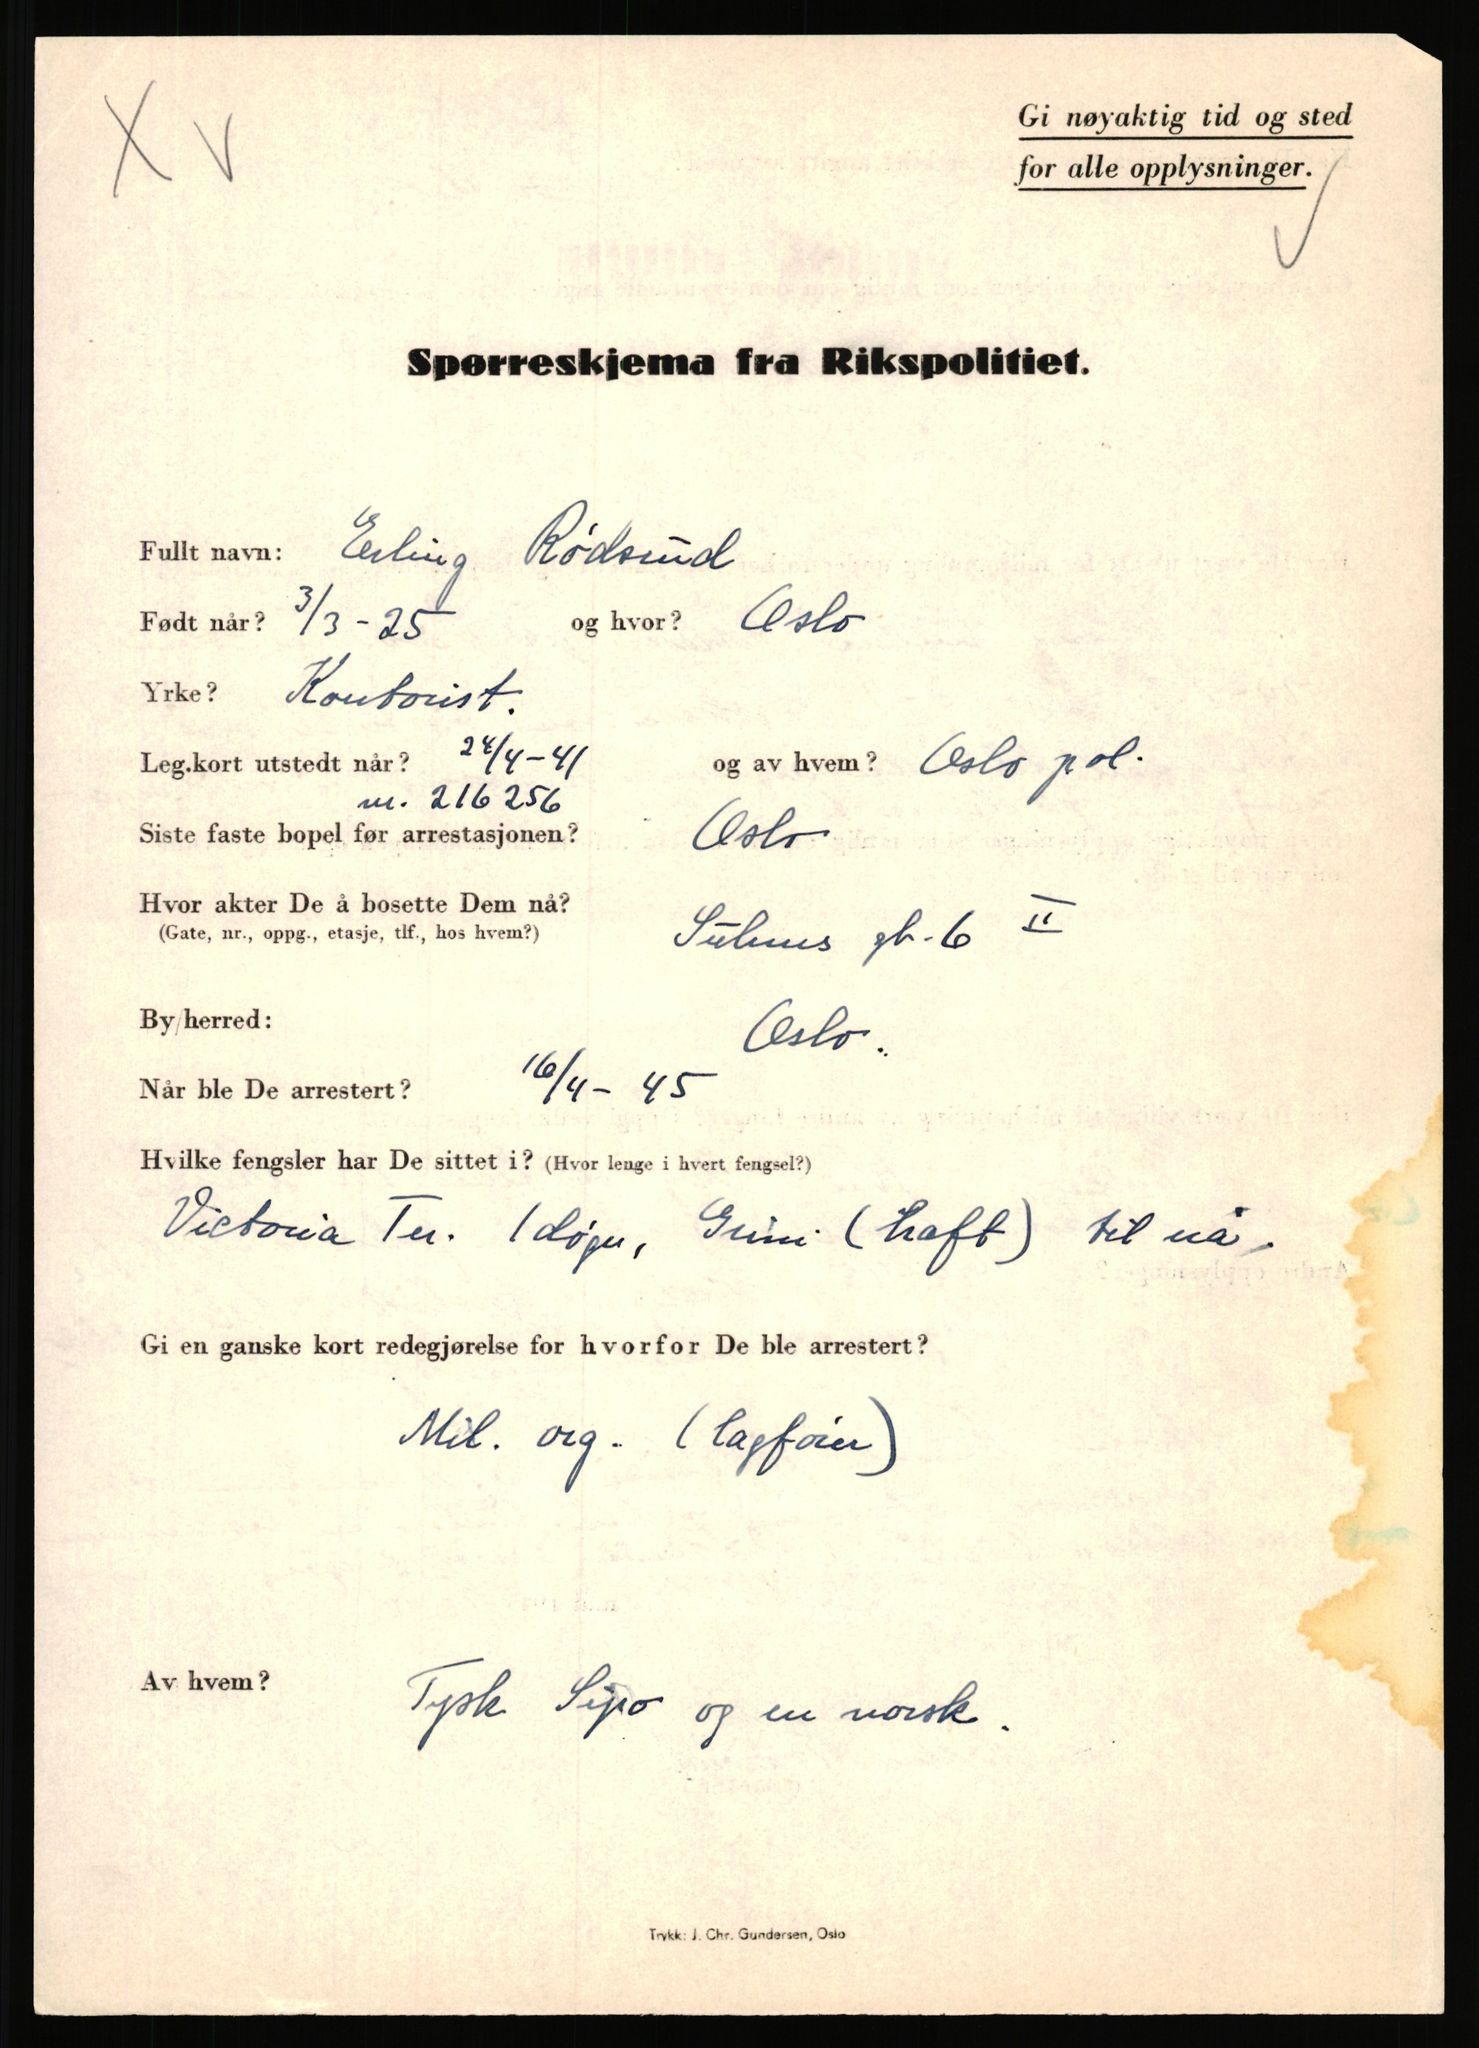 X V
Gi nøyaktig tid og sted
for alle opplysninger.
Spørreskjema fra Rikspolitiet.
Fullt navn: Erling Rødsrud
Født når? 3/3 - 25 og hvor? Oslo
Yrke? Kontorist.
Leg.kort utstedt når? 24/4-41 og av hvem? Oslo pol.
nr. 216256
Siste faste bopel før arrestasjonen? Oslo
Hvor akter De å bosette Dem nå?
(Gate, nr., oppg., etasje, tlf., hos hvem?) Suhms gt. 6 II
By/herred: Oslo.
Når ble De arrestert? 16/4 - 45
Hvilke fengsler har De sittet i? (Hvor lenge i hvert fengsel?)
Victoria Terr. 1 døgn, Grini (haft) til nå.
Gi en ganske kort redegjørelse for hvorfor De ble arrestert?
Mil. org. (lagfører)
Av hvem? Tysk Sipo og en norsk.
Trykk: J. Chr. Gundersen, Oslo